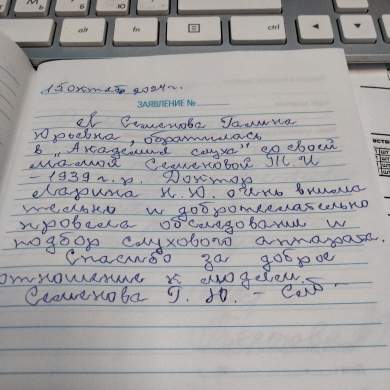 15 октябр 2024 г.
ЗАЯВЛЕНИЕ №
Я Семенова Галина
Юрьевна, обратилась
в "Академия слуха" со своей
мамой Семеновой Т.И
- 1939 г.р. Доктор
Ларина Н.Ю. очень внима
тельно и доброжелательно
провела обследование и
подбор слухового аппарата.
Спасибо за доброе
отношение к людям.
Семенова Г. Ю. -